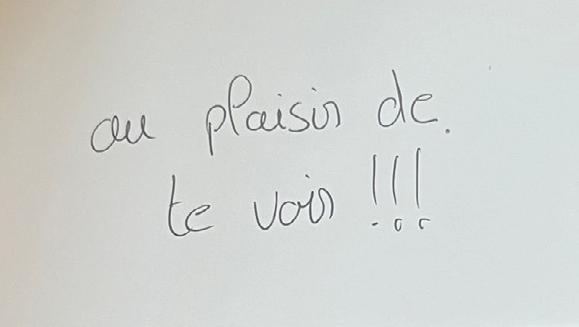 au plaisir de.
te voir !!!